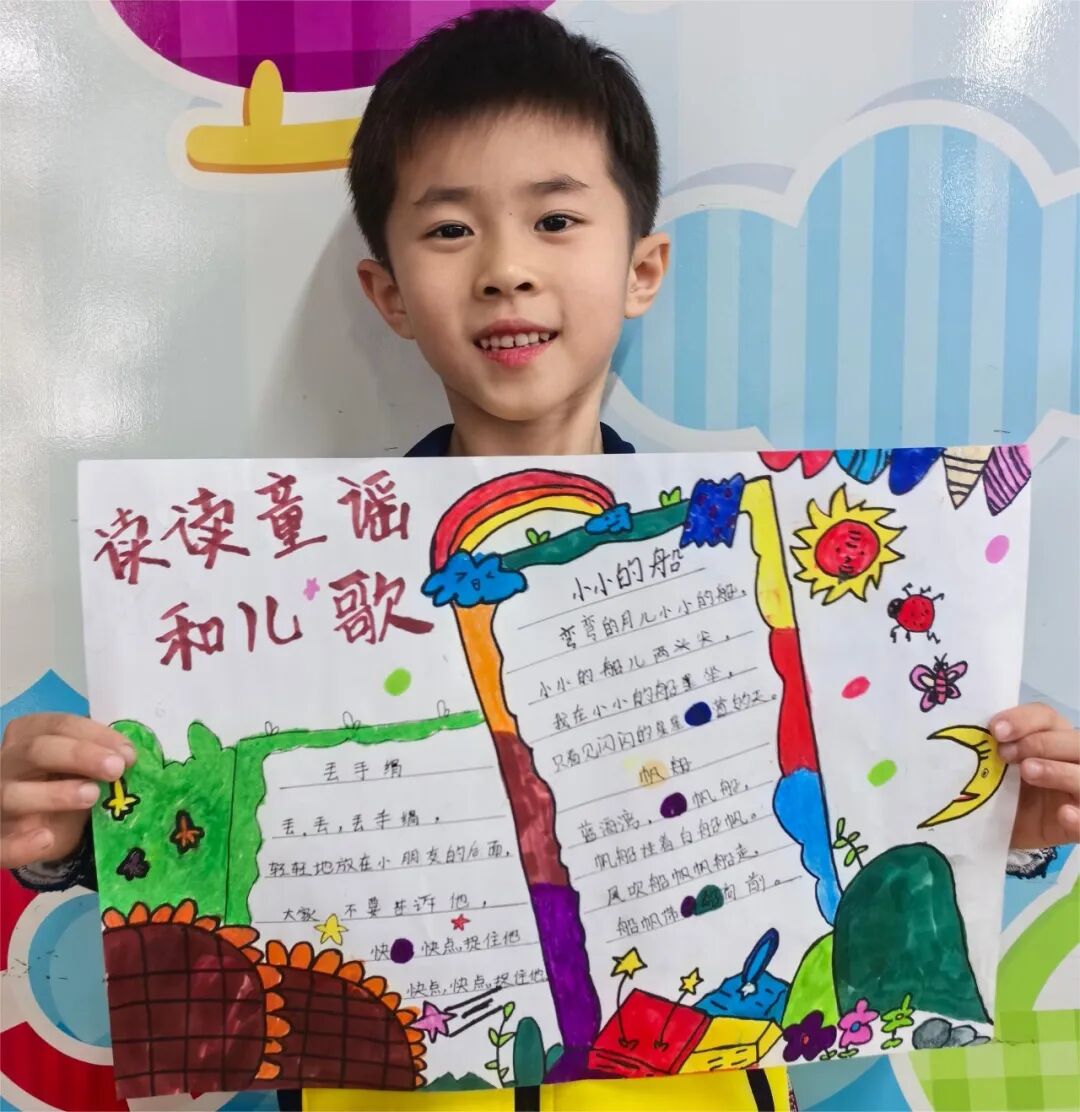 读读童谣
和儿歌
丢手绢
丢,丢,丢手绢,
轻轻地放在小朋友的后面,
大家 不要告诉他,
快 快点,捉住他
快点,快点,捉住他
小小的船
弯弯的月儿小小的船。
小小的船儿两头尖,
我在小小的船里坐,
只看见闪闪的星星 蓝的天。
帆船
蓝海湾, 帆船,
帆船挂着白船帆。
风吹船帆帆船走。
船帆带 向前。